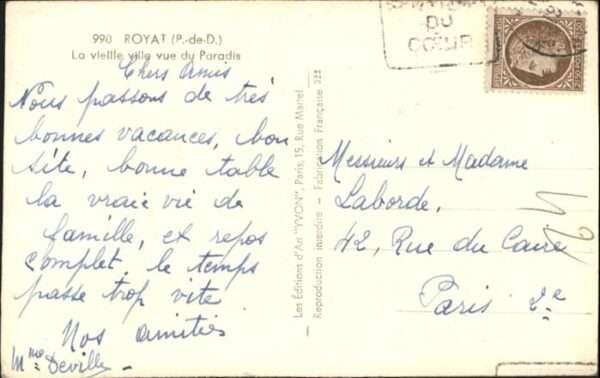 990 ROYAT (P.-de-D.)
La vieille ville vue du Paradis
Chers Amis
Nous passons de très
bonnes vacances, bon
site, bonne table
la vraie vie de
famille, et repos
complet. le temps
passe trop vite
Nos amitiés
Mme Deville
Les Editions d'Art "YVON", Paris, 15, Rue Martel
Reproduction interdite - Fabrication Française
DU
CŒUR
Messieurs et Madame
Laborde,
42, Rue du Caire
Paris 2e